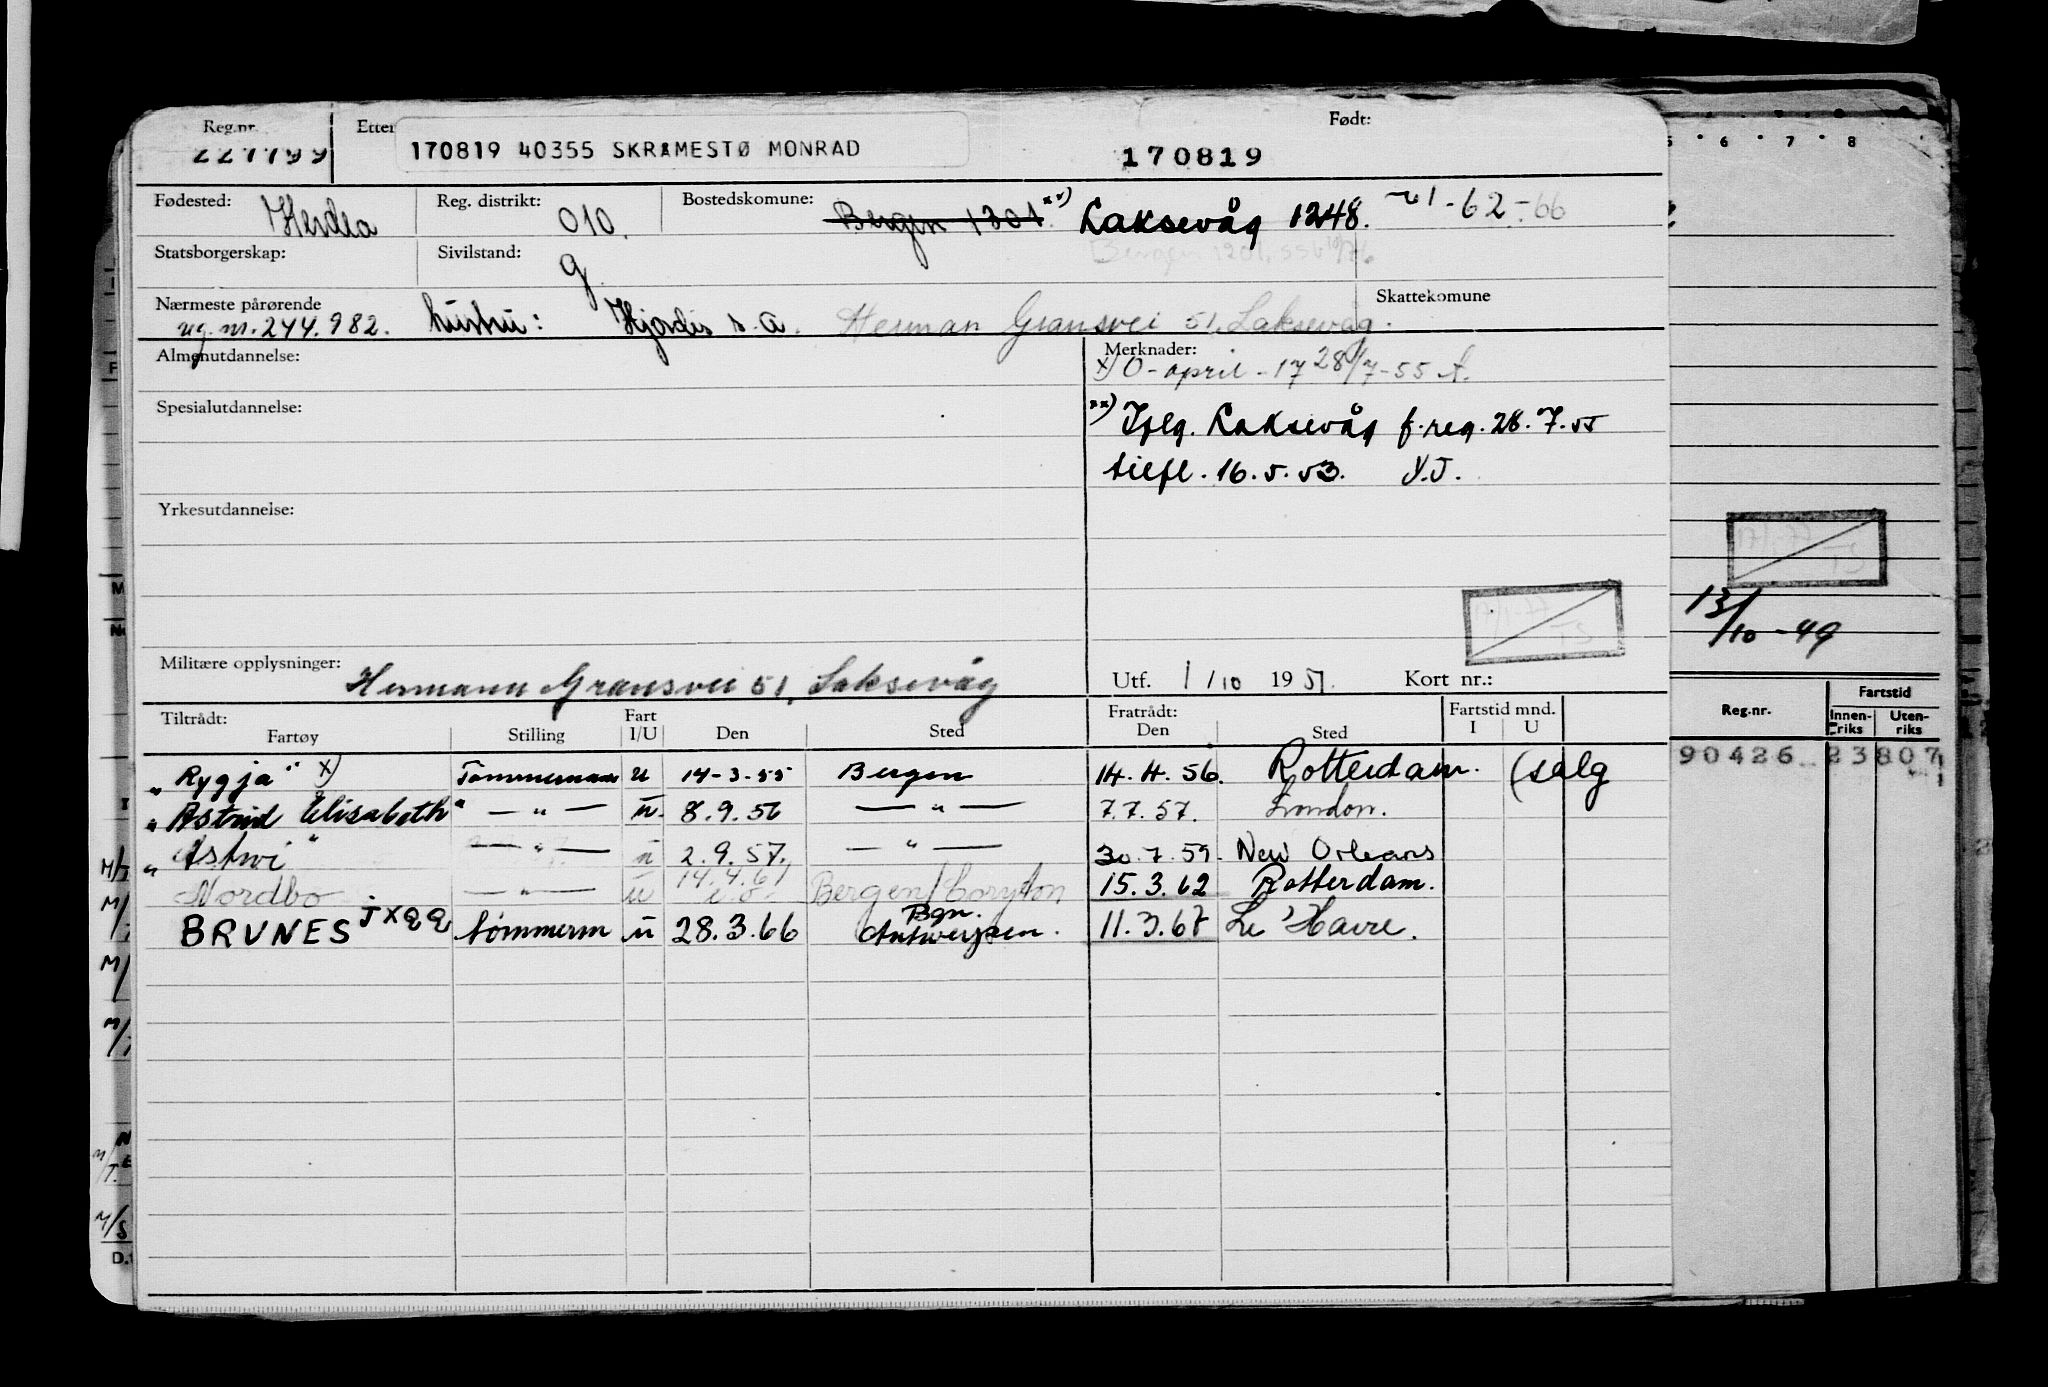 Reg.nr. Etter Født:
170819 40355 SKRAMESTØ MONRAD 170819
Fødested: Herdla Reg. distrikt: 010. Bostedskomune: Bergen 1301 **) Laksevåg 1248. 61-62-66
Bergen 1201
Statsborgerskap: Sivilstand: g
Nærmeste pårørende Skattekomune
ug. nr. 244.982. hustru: Hjördis s.a. Herman Gransvei 51, Laksevåg.
Almenutdannelse: Merknader:
x) O-april-17 28/7-55 A.
Spesialutdannelse:
**) Iflg. Laksevåg f.reg. 28.7.55
tilfl. 16.5.53. V.J.
Yrkesutdannelse:
17/1-77 TS
17/1-77 TS
13/10-49
Militære opplysninger: Hermann Gransvei 51, Laksevåg
Utf. 1/10 1951. Kort nr.:
Tiltrådt: Fart Fratrådt: Fartstid mnd.
Fartøy Stilling I/U Den Sted Den Sted I U
Reg.nr. Fartstid
Innenriks Utenriks
90426 23 807
"Rygja" x) Tømmermann U 14-3-55 Bergen 14.4.56. Rotterdam. (salg
"Astrid Elisabeth" — " — U. 8.9.56 — " — 7.7.57. London.
"Astwi" — " — U 2.9.57. — " — 30.7.59. New Orleans
Nordbo — " — U 14.4.61 Bergen/Coryton 15.3.62 Rotterdam.
BRUNES JXQQ tømmerm U 28.3.66 Bgn. Antwerpen. 11.3.67 Le Havre.